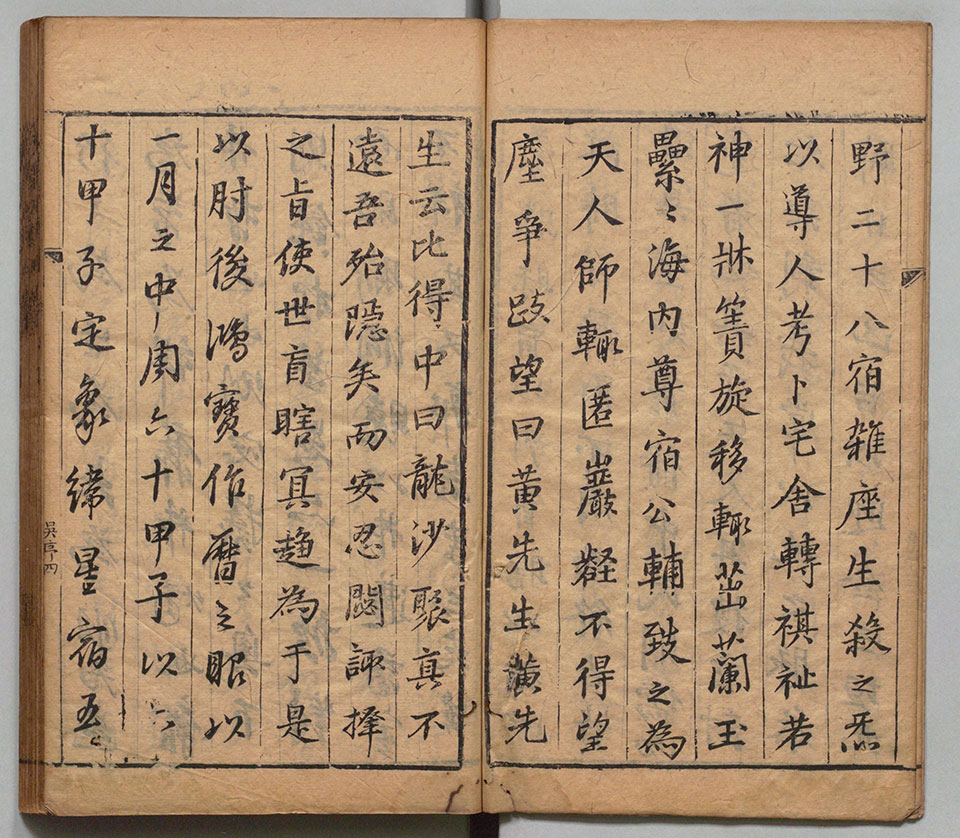 野二十八宿雜座生殺之炁
以導人考卜宅舍轉祺祉若
神一牀簀旋移輙茁蘭玉
纍〻海內尊宿公輔致之為
天人師輙匿巖壑不得望
塵爭跂望曰黃先生黃先
生云比得中曰龍沙聚真不
遠吾殆隱矣而安忍閟諏擇
之旨使世盲瞎冥趨為于是
以肘後鴻寶作曆之眼以
一月之中周六十甲子以六
十甲子定象緯星宿五〻
吳亭四